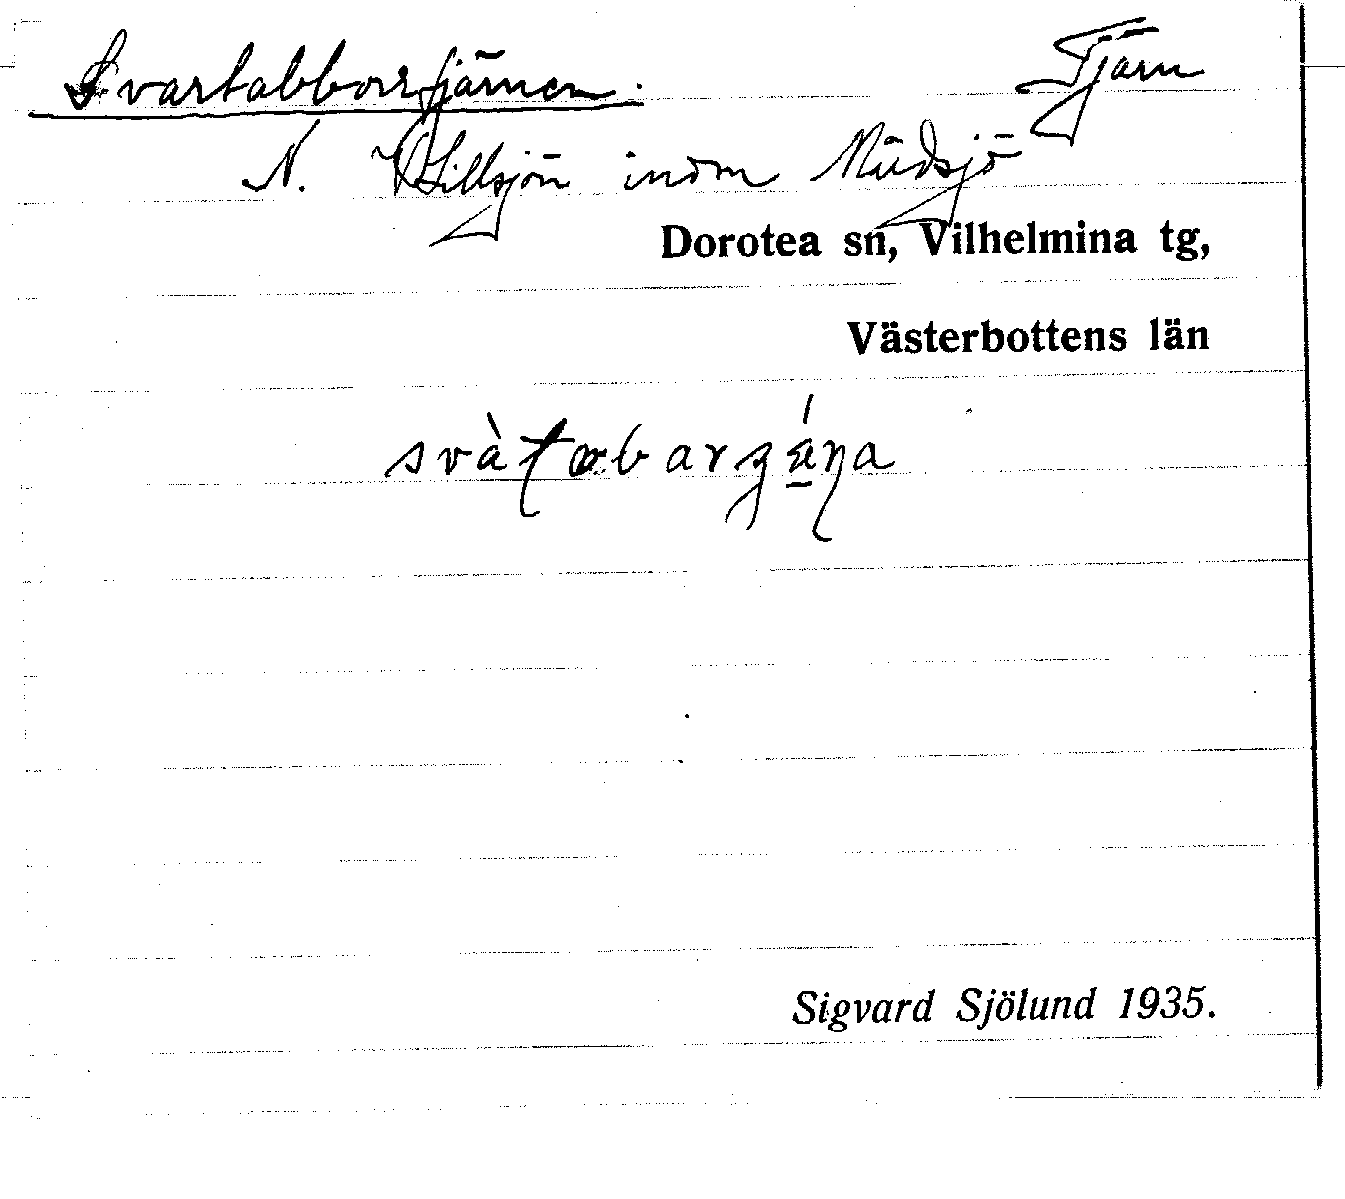 Svartabborrtjärnen. Tjärn
N. Lillsjön inom Mädsjö
Dorotea sn, Vilhelmina tg,
Västerbottens län
Sigvard Sjölund 1935.